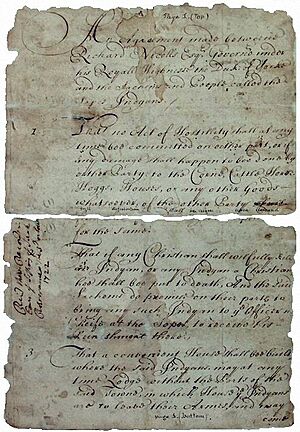 Page 1. (Top)
An Agreement made betweene
Richard Nicolls Esqr. Governor under
his Royall Highnesse the Duke of Yorke
and the Sachems and People called the
Sopes Indyans.
1. That no Act of Hostility shall at any
time bee committed on either part, or if
any damage shall happen to bee done by
either Party to the Corne, Cattle, Horses
Hoggs, Houses, or any other Goods
whatsoever, of the other Party
for the same.
That if any Christian shall wilfully kill
an Indyan, or any Indyan a Christian
hee shall bee put to death. And the said
Sachems do promise on their parts to
bring any such Indyan to ye Officer in
Cheife at the Sopes, to receive his
punishment there.
3. That a convenient House shall bee built
where the said Indyans may at any
time Lodge without the Ports of the
said Towne, in which House ye Indyans
are to leave their Armes, and may
come
Page 1. bottom
1722